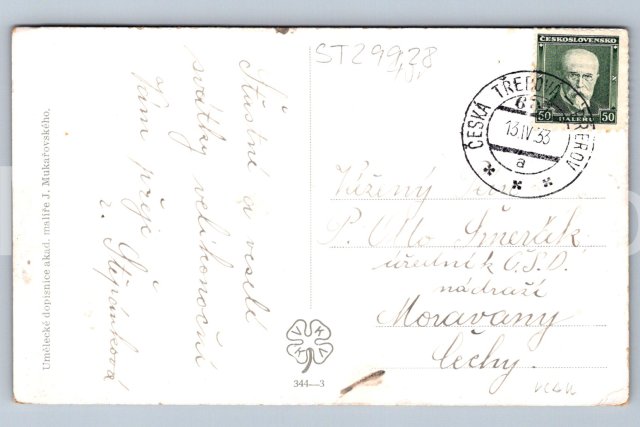 ST 299,28
ČESKOSLOVENSKO
50 HALÉŘŮ 50
ČESKÁ TŘEBOVÁ
13 IV 33
a
Umělecké dopisnice akad. malíře J. Mukařovského,
Šťastné a veselé
svátky velikonoční
Vám přeje
Štěpánková
Vážený pan
P. Otto Šmerček
úředník Č.S.D.
nádraží
Moravany
Čechy.
344—3